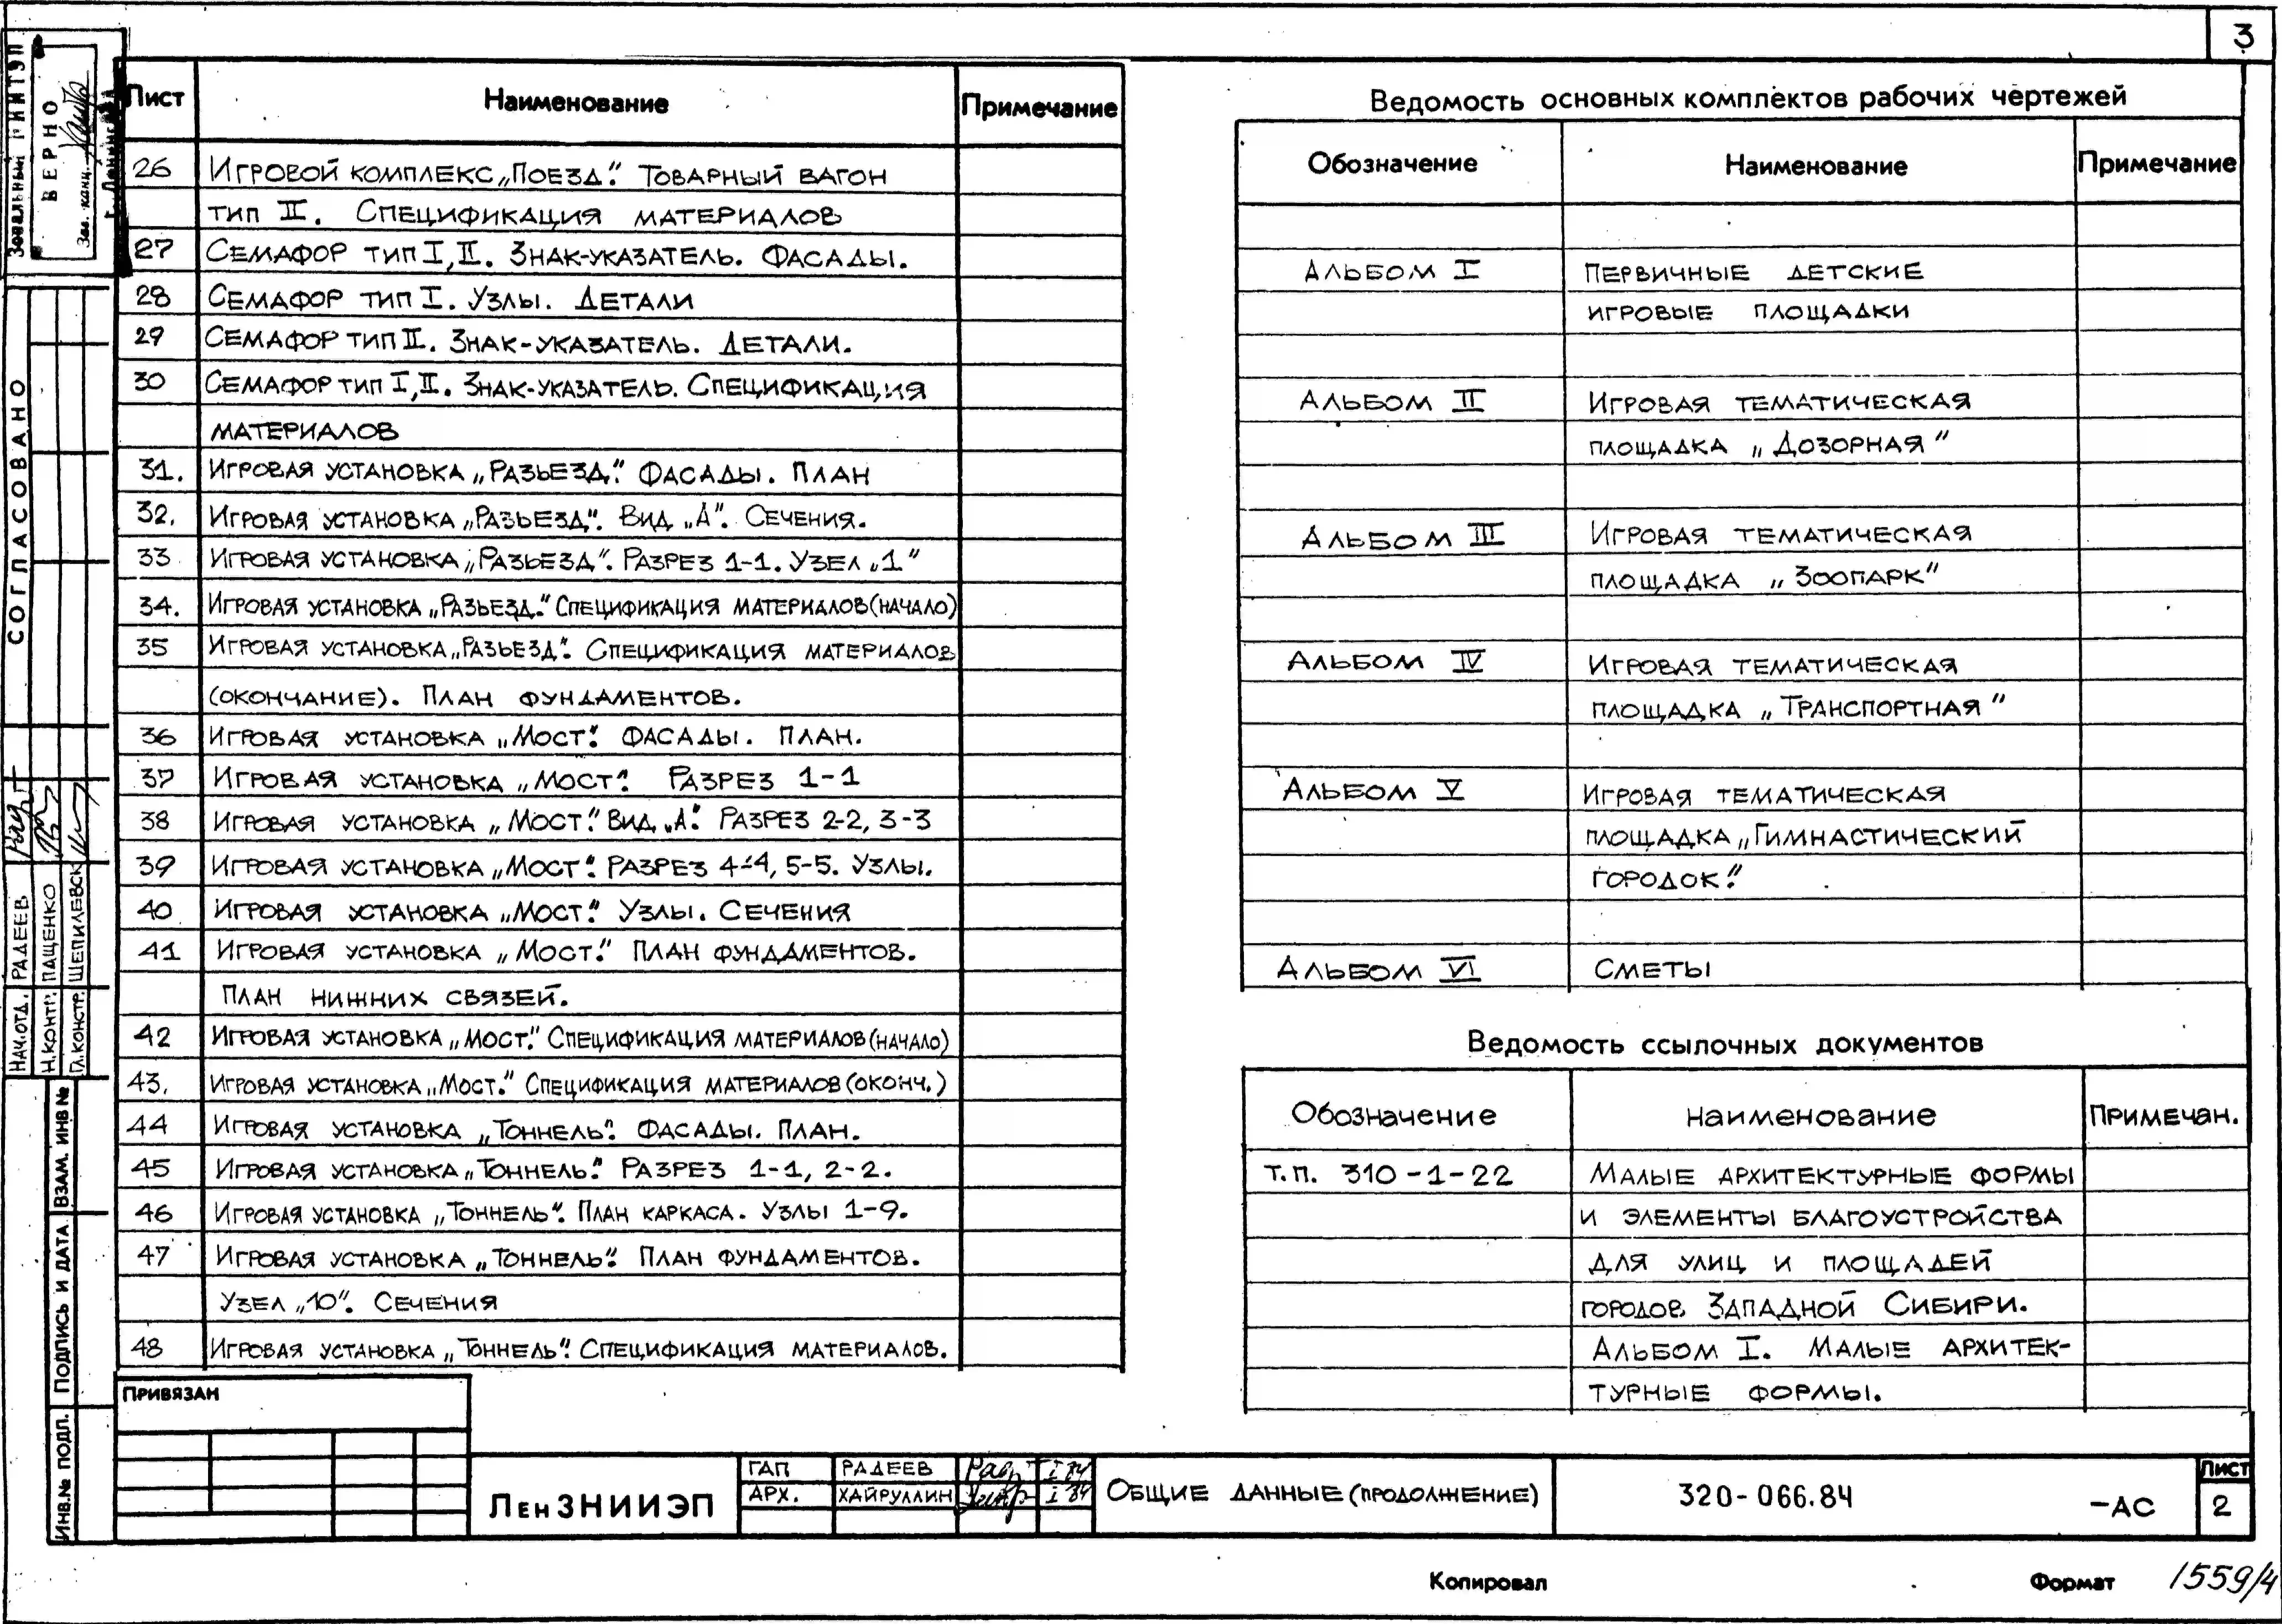 3
Лист Наименование Примечание
26 Игровой комплекс „Поезд". Товарный вагон
тип II. Спецификация материалов
27 Семафор тип I, II. Знак-указатель. Фасады.
28 Семафор тип I. Узлы. Детали
29 Семафор тип II. Знак-указатель. Детали.
30 Семафор тип I, II. Знак-указатель. Спецификация
материалов
31. Игровая установка „Разьезд". Фасады. План
32. Игровая установка „Разьезд". Вид „А". Сечения.
33 Игровая установка „Разьезд". Разрез 1-1. Узел „1"
34. Игровая установка „Разьезд." Спецификация материалов (начало)
35 Игровая установка „Разьезд". Спецификация материалов
(окончание). План фундаментов.
36 Игровая установка „Мост". Фасады. План.
37 Игровая установка „Мост". Разрез 1-1
38 Игровая установка „Мост". Вид „А". Разрез 2-2, 3-3
39 Игровая установка „Мост". Разрез 4-4, 5-5. Узлы.
40 Игровая установка „Мост". Узлы. Сечения
41 Игровая установка „Мост". План фундаментов.
План нижних связей.
42 Игровая установка „Мост". Спецификация материалов (начало)
43. Игровая установка „Мост." Спецификация материалов (оконч.)
44 Игровая установка „Тоннель". Фасады. План.
45 Игровая установка „Тоннель". Разрез 1-1, 2-2.
46 Игровая установка „Тоннель". План каркаса. Узлы 1-9.
47 Игровая установка „Тоннель". План фундаментов.
Узел „10". Сечения
48 Игровая установка „Тоннель". Спецификация материалов.
Ведомость основных комплектов рабочих чертежей
Обозначение Наименование Примечание
Альбом I Первичные детские
игровые площадки
Альбом II Игровая тематическая
площадка „Дозорная"
Альбом III Игровая тематическая
площадка „Зоопарк"
Альбом IV Игровая тематическая
площадка „Транспортная"
Альбом V Игровая тематическая
площадка „Гимнастический
городок".
Альбом VI Сметы
Ведомость ссылочных документов
Обозначение Наименование Примечан.
Т.п. 310-1-22 Малые архитектурные формы
и элементы благоустройства
для улиц и площадей
городов Западной Сибири.
Альбом I. Малые архитек-
турные формы.
Привязан
ЛенЗНИИЭП
ГАП Радеев I 84
Арх. Хайруллин I 84
Общие данные (продолжение)
320-066.84 -АС
Лист
2
Копировал Формат 1559/4
Верно
Зав. канц.
Согласовано
Нач.отд. Радеев
Н.контр. Пащенко
Гл.констр.
Взам. инв №
Подпись и дата
Инв.№ подл.